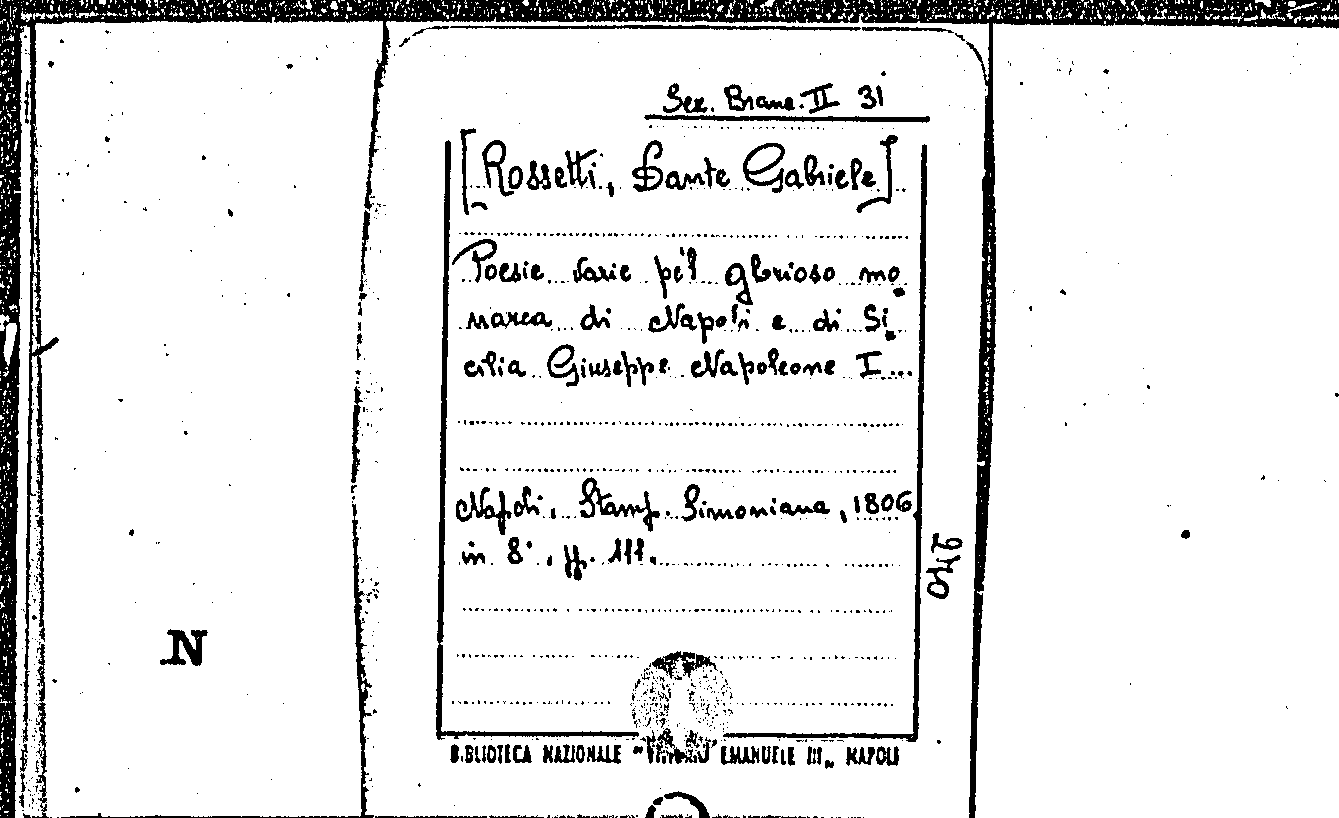 Sez. Branc. II 31
[Rossetti, Dante Gabriele]
Poesie varie pe'l glorioso mo-
narca di Napoli e di Si-
cilia Giuseppe Napoleone I...
Napoli, Stamp. Simoniana, 1806,
in 8°, pp. 111.
N
BIBLIOTECA NAZIONALE "VITTORIO EMANUELE III„ NAPOLI